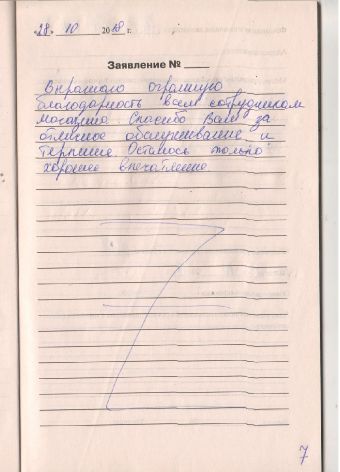 «28» 10 2018 г.
Заявление №
Выражаю огромную
благодарность всем сотрудникам
магазина. Спасибо Вам за
отличное обслуживание и
терпение. Осталось только
хорошее впечатление
7